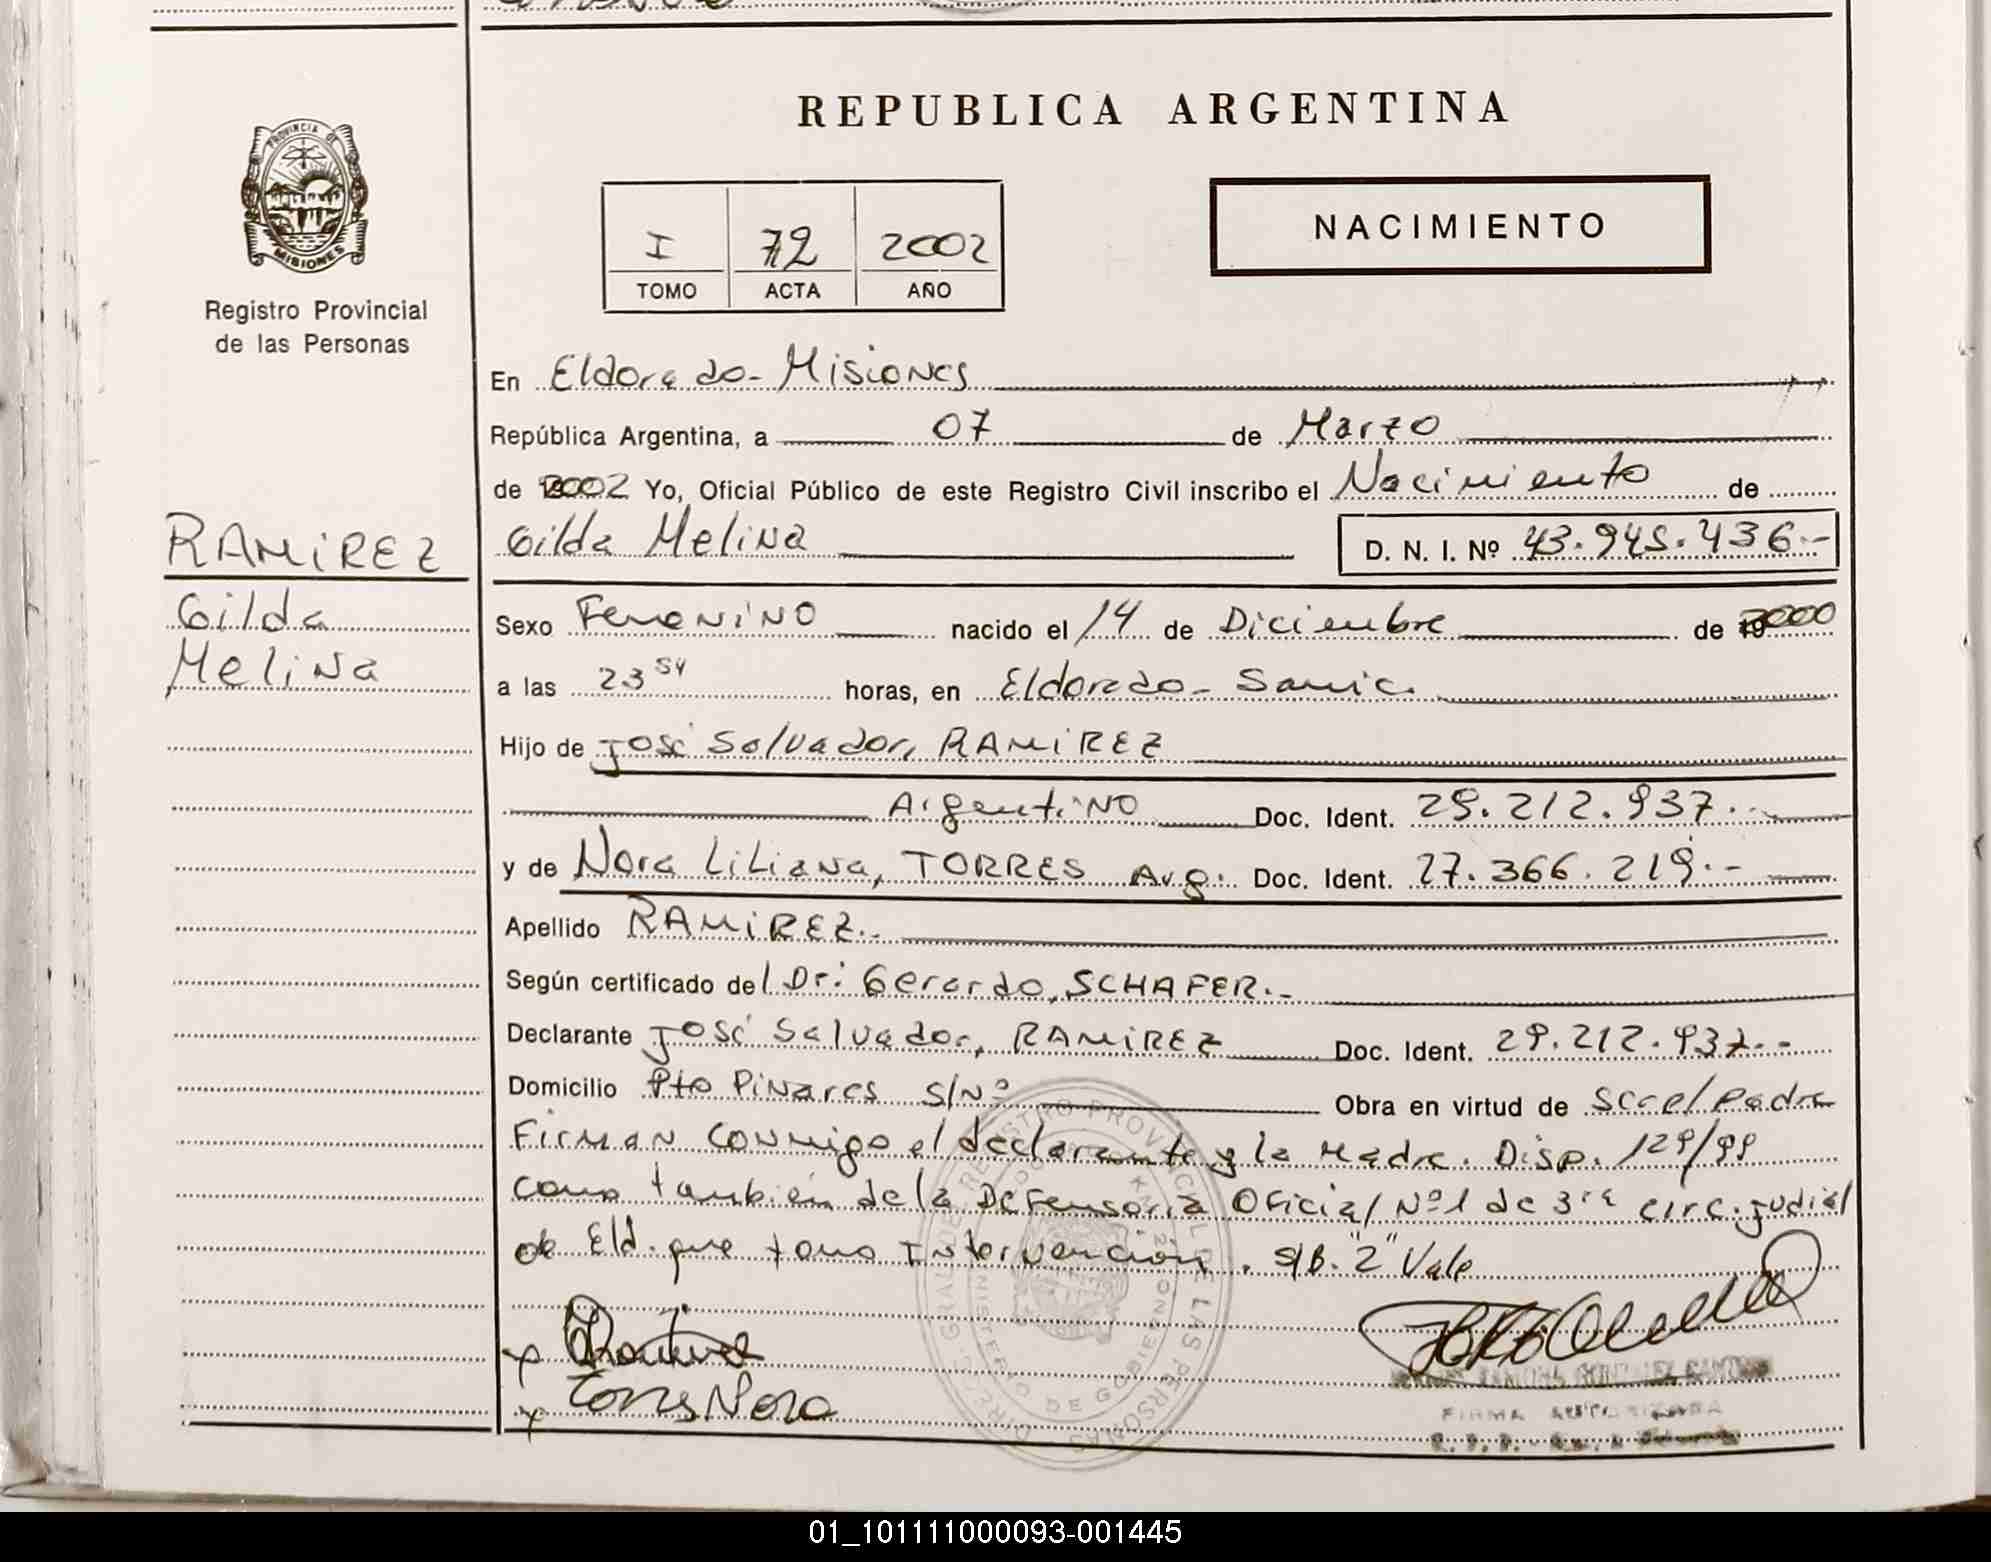 REPUBLICA ARGENTINA
PROVINCIA DE
MISIONES
Registro Provincial
de las Personas
I 72 2002
TOMO ACTA AÑO
NACIMIENTO
En Eldorado - Misiones
República Argentina, a 07 de Marzo
de 2002 Yo, Oficial Público de este Registro Civil inscribo el Nacimiento de
Gilda Melina D. N. I. Nº 43.945.436.-
RAMIREZ
Gilda
Melina
Sexo Femenino nacido el 14 de Diciembre de 2000
a las 23 54 horas, en Eldorado - Samic.
Hijo de José Salvador, RAMIREZ
Argentino Doc. Ident. 29.212.937.-
y de Nora Liliana, TORRES Arg. Doc. Ident. 27.366.219.-
Apellido RAMIREZ.-
Según certificado del Dr: Gerardo, SCHAFER.-
Declarante José Salvador, RAMIREZ Doc. Ident. 29.212.937.-
Domicilio Pto Pinares S/Nº Obra en virtud de ser el Padre
Firman conmigo el declarante y la Madre. Disp. 129/99
como también de la Defensoria Oficial Nº1 de 3ra circ. judial
de Eld. que tomo Intervención. S/B. "2" Vale
Torres Nora
FIRMA AUTORIZADA
01_101111000093-001445